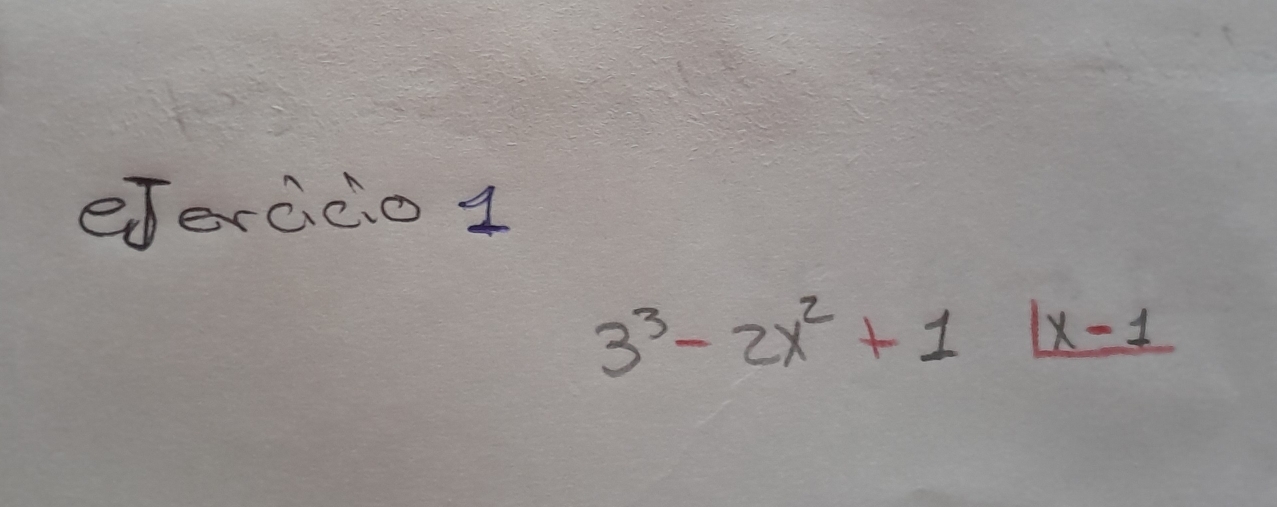 eJercicio 1
3³ - 2x² + 1 |x - 1